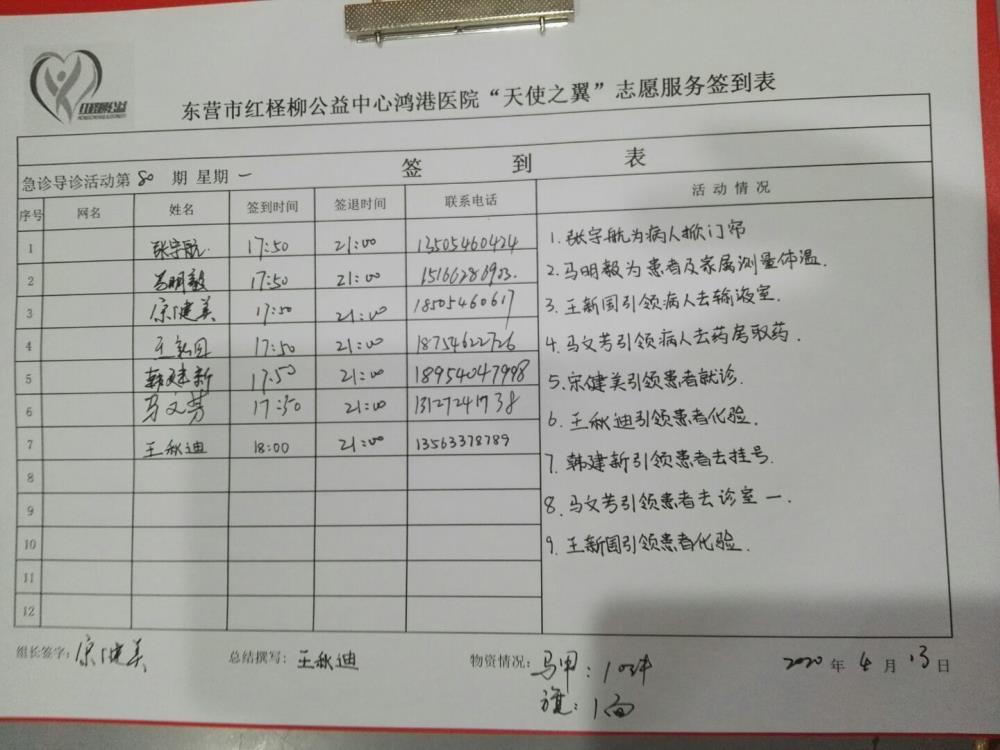 红柽柳公益
东营市红柽柳公益中心鸿港医院“天使之翼”志愿服务签到表
签 到 表
急诊导诊活动第 80 期 星期 一
序号 网名 姓名 签到时间 签退时间 联系电话 活动情况
1 张宇航 17:50 21:00 13505460424
2 马明毅 17:50 21:00 15166286903
3 宋健美 17:50 21:00 18505460617
4 王新国 17:50 21:00 18754622726
5 韩建新 17:50 21:00 18954047998
6 马文芳 17:50 21:00 13127241738
7 王秋迪 18:00 21:00 13563378789
8
9
10
11
12
1. 张宇航为病人掀门帘
2. 马明毅为患者及家属测量体温.
3. 王新国引领病人去输液室.
4. 马文芳引领病人去药房取药.
5. 宋健美引领患者就诊.
6. 王秋迪引领患者化验.
7. 韩建新引领患者去挂号.
8. 马文芳引领患者去诊室一.
9. 王新国引领患者化验.
组长签字: 宋健美 总结撰写: 王秋迪 物资情况: 马甲: 10件 2020 年 4 月 13 日
旗: 1面